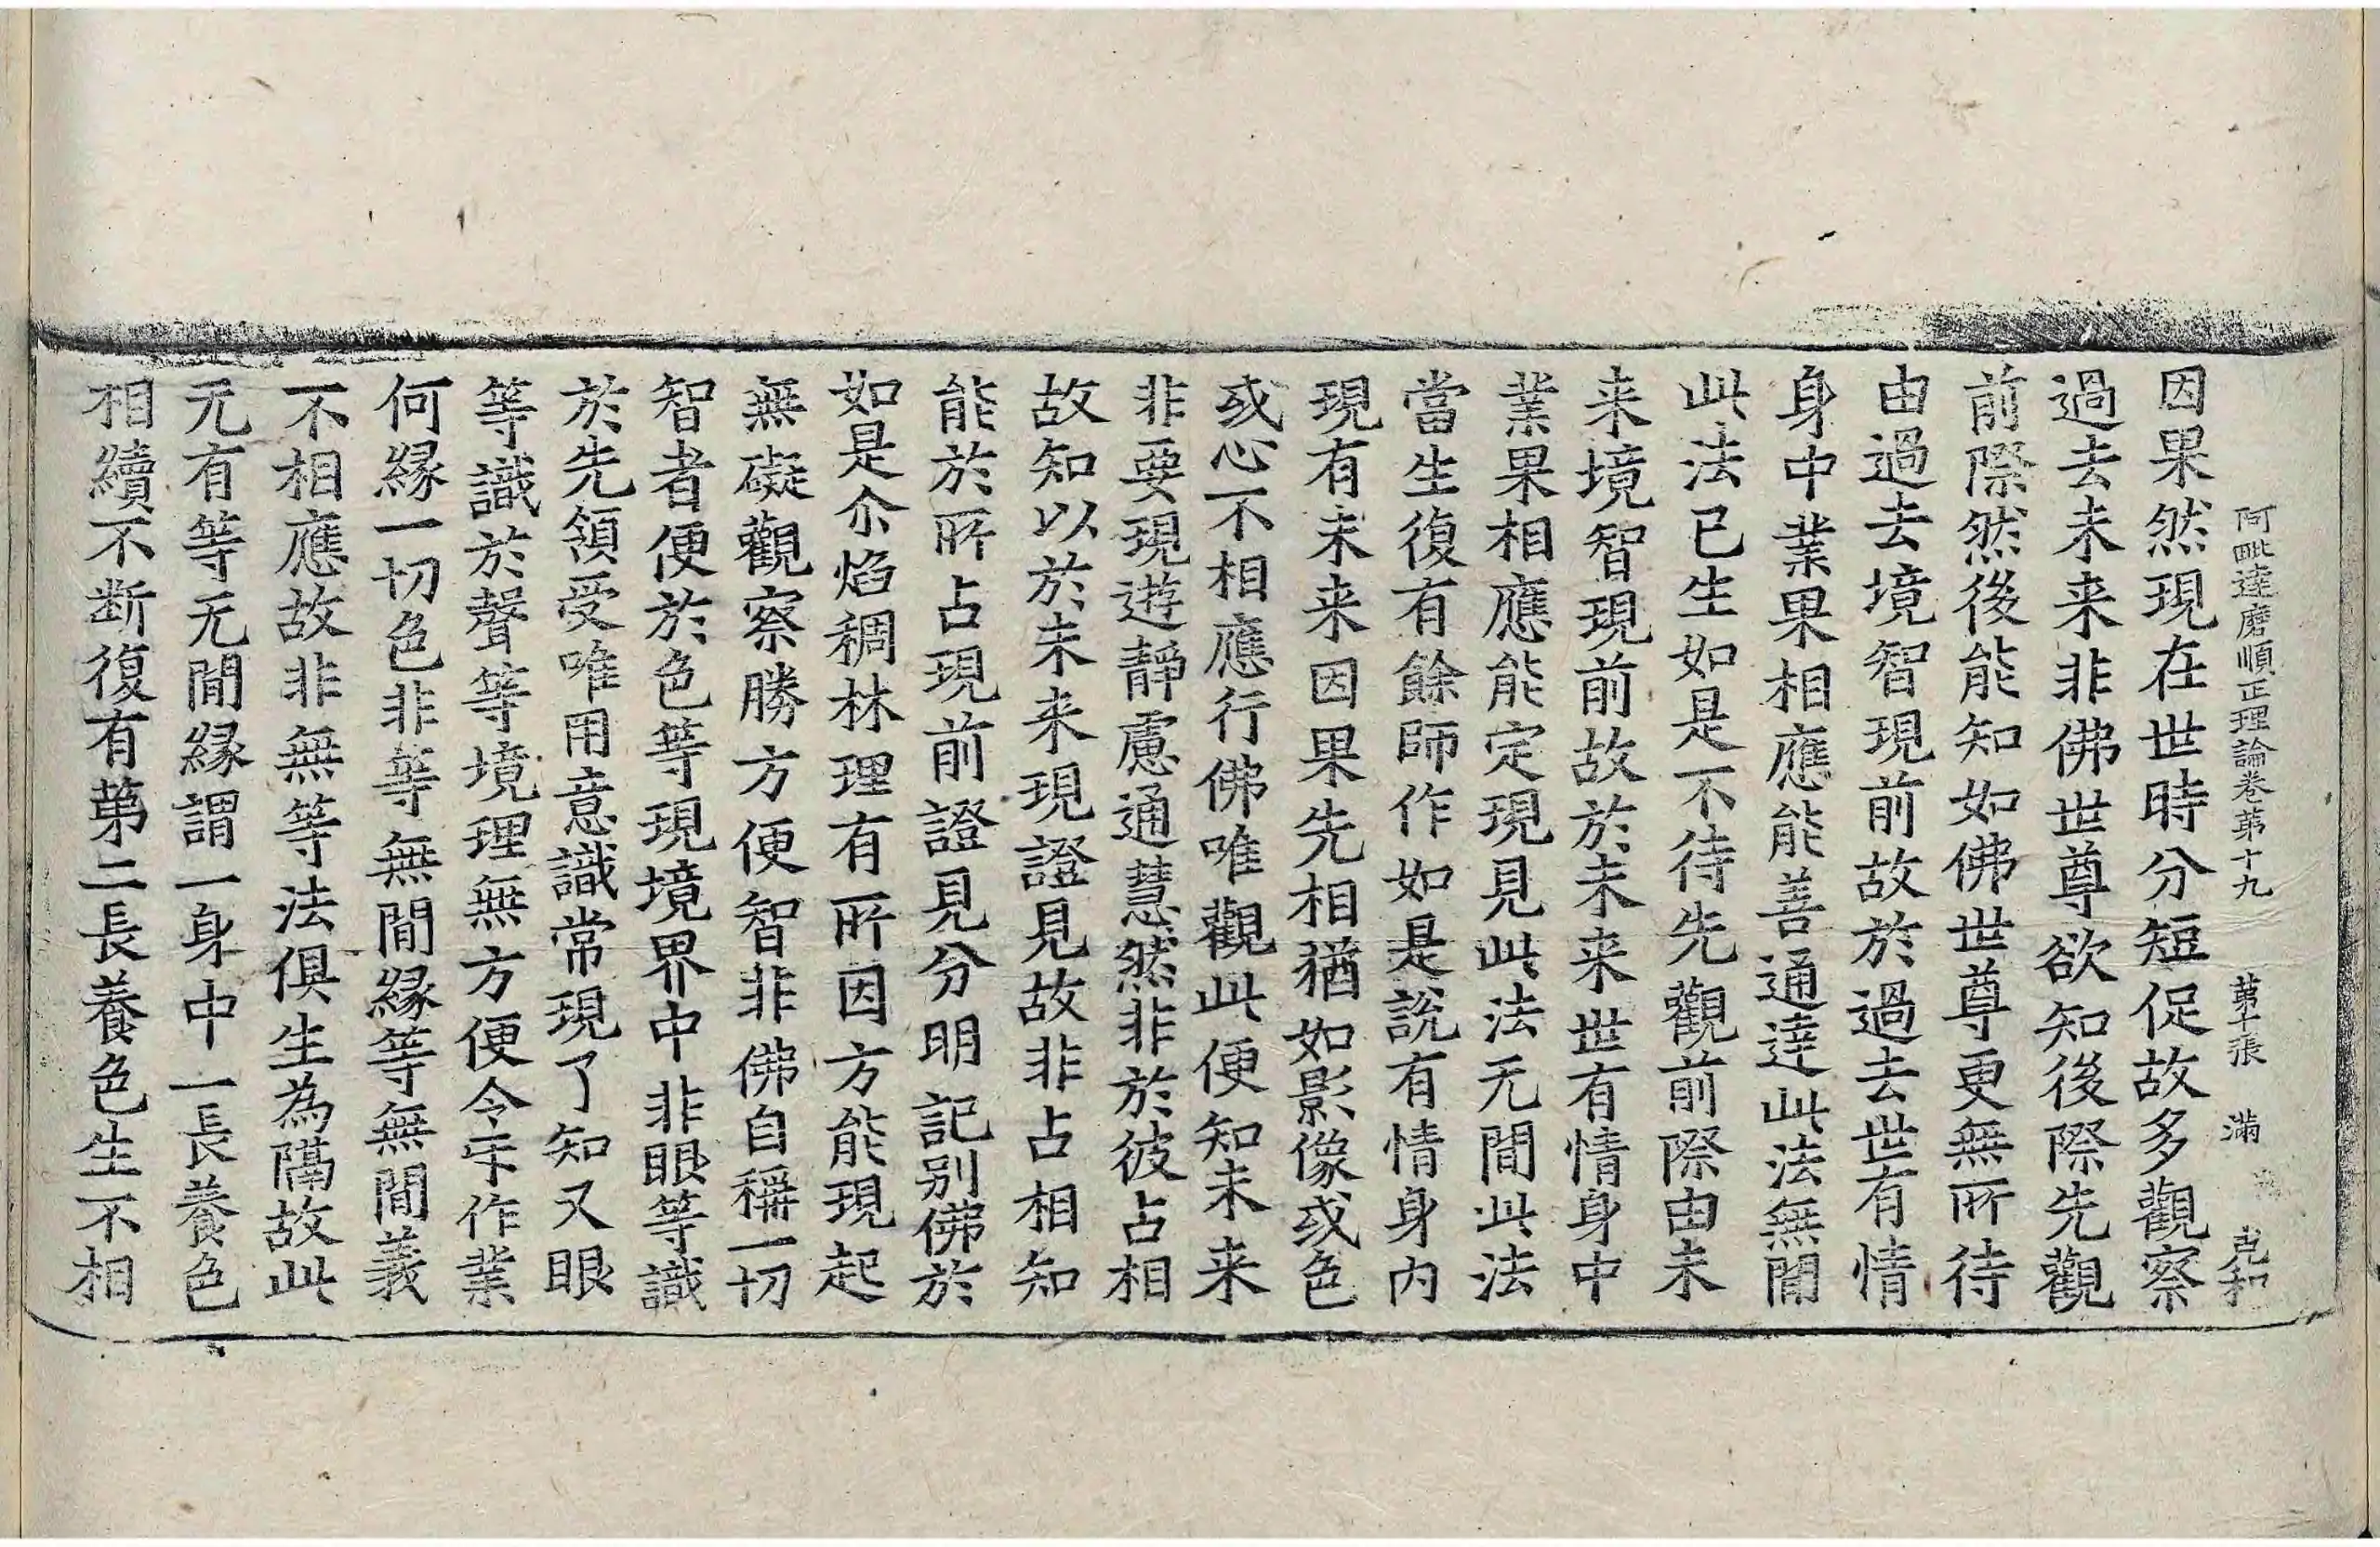 阿毗達磨順正理論卷第十九　第十張　滿　克和
因果然現在世時分短促故多觀察
過去未来非佛世尊欲知後際先觀
前際然後能知如佛世尊更無所待
由過去境智現前故於過去世有情
身中業果相應能善通達此法無間
此法已生如是不待先觀前際由未
来境智現前故於未来世有情身中
業果相應能定現見此法无間此法
當生復有餘師作如是說有情身內
現有未来因果先相猶如影像或色
或心不相應行佛唯觀此便知未来
非要現遊靜慮通慧然非於彼占相
故知以於未来現證見故非占相知
能於所占現前證見分明記别佛於
如是尒焰稠林理有所因方能現起
無礙觀察勝方便智非佛自稱一切
智者便於色等現境界中非眼等識
於先領受唯用意識常現了知又眼
等識於聲等境理無方便令乐作業
何緣一切色非等無間緣等無間義
不相應故非無等法俱生為隔故此
无有等无間緣謂一身中一長養色
相續不断復有第二長養色生不相